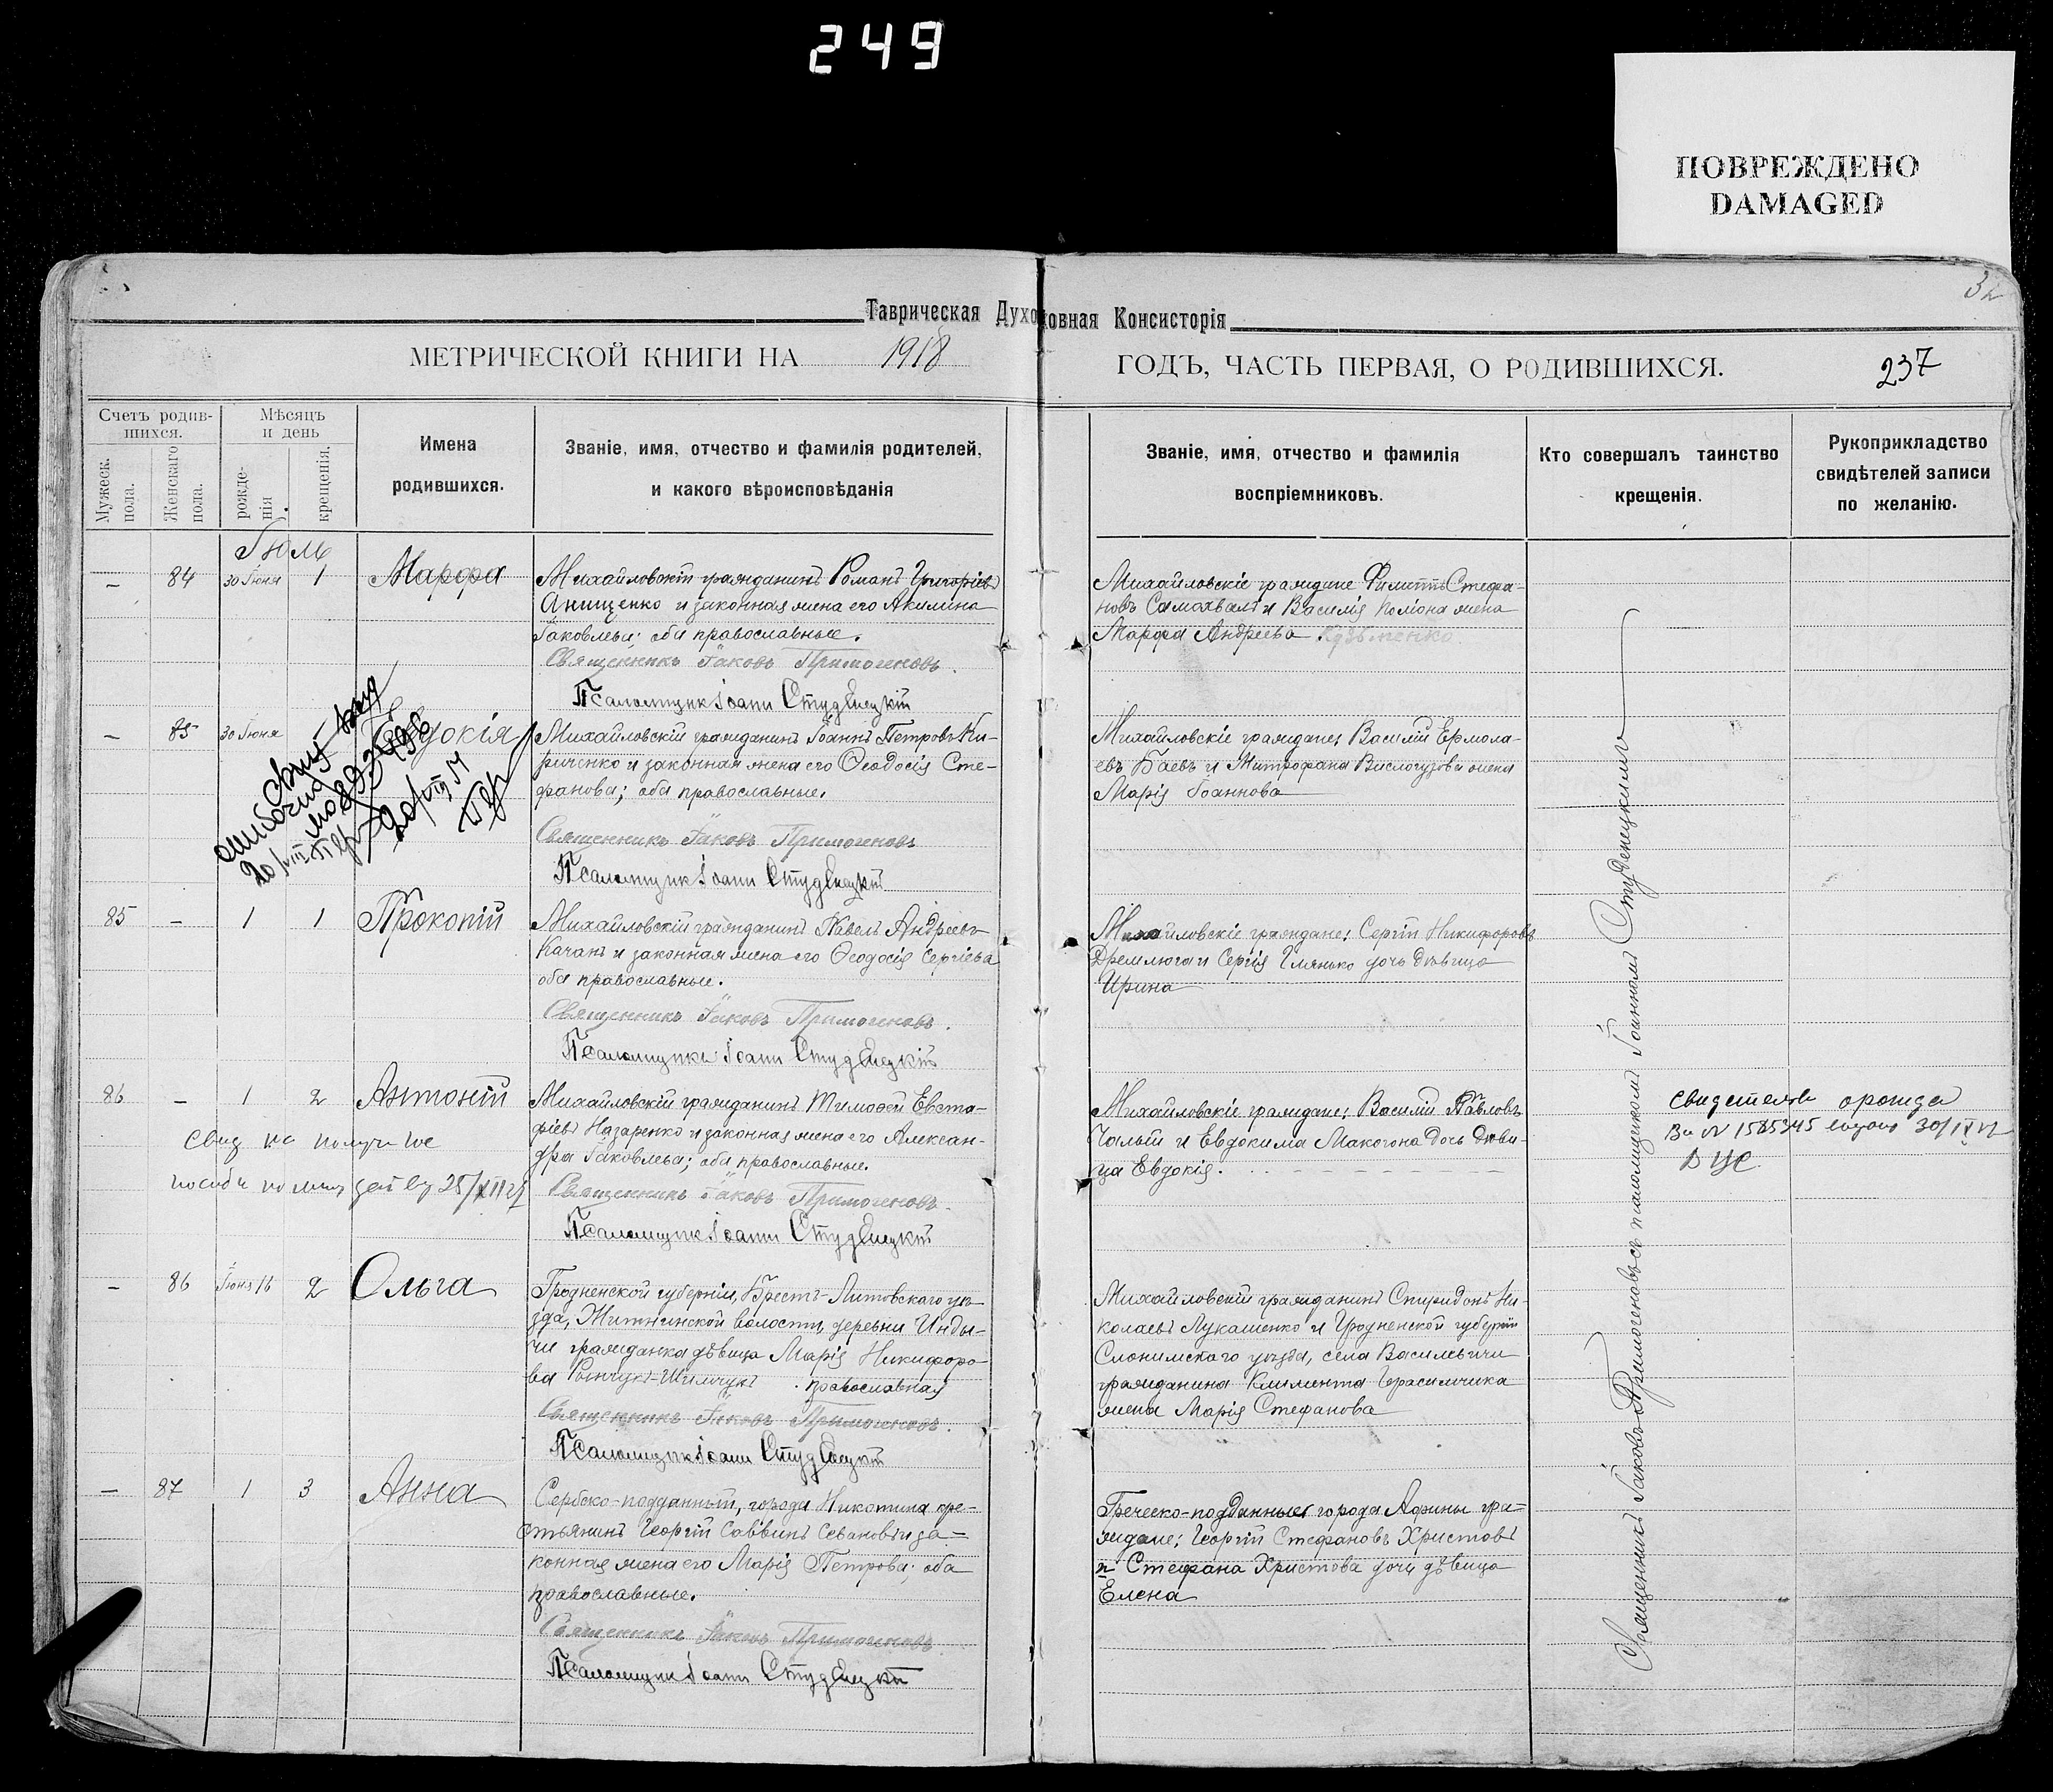 249
ПОВРЕЖДЕНО
DAMAGED
Таврическая Духовная Консисторія
32
МЕТРИЧЕСКОЙ КНИГИ НА 1918 ГОДЪ, ЧАСТЬ ПЕРВАЯ, О РОДИВШИХСЯ.
237
Счетъ родив-
шихся.
Мужеск.
пола.
Женскаго
пола.
Мѣсяцъ
и день
рожде-
нія
крещенія.
Имена
родившихся.
Званіе, имя, отчество и фамилія родителей,
и какого вѣроисповѣданія
Званіе, имя, отчество и фамилія
воспріемниковъ.
Кто совершалъ таинство
крещенія.
Рукоприкладство
свидѣтелей записи
по желанію.
Іюль
— 84 30 Іюня 1 Марфа
Михайловскій гражданинъ Романъ Григоріевъ
Анищенко и законная жена его Акилина
Іаковлева; оба православные.
Священникъ Іаковъ Примогеновъ.
Псаломщик Іоанн Студенецкій
Михайловскіе граждане Филиппъ Стефа-
новъ Самохвалъ и Василія жена
Марфа Андреева Кузьменко
— 85 30 Іюня Евдокія
Михайловскій гражданинъ Іоаннъ Петровъ Ки-
риченко и законная жена его Ѳеодосія Сте-
фанова; оба православные.
Священникъ Іаковъ Примогеновъ
Псаломщик Іоанн Студенецкій
Михайловскіе граждане: Василій Ермола-
евъ Баевъ и Митрофана Вислогузова жена
Марія Іоаннова
ошибочно
20/VIII
20/VIII 51
85 — 1 1 Прокопій
Михайловскій гражданинъ Павелъ Андреевъ
Качанъ и законная жена его Ѳеодосія Сергіева
оба православные.
Священникъ Іаковъ Примогеновъ.
Псаломщикъ Іоанн Студенецкій
Михайловскіе граждане: Сергій Никифоровъ
Дремлюга и Сергія Гмянько дочь дѣвица
Ирина
86 — 1 2 Антоній
Михайловскій гражданинъ Тимоѳей Евста-
фіевъ Назаренко и законная жена его Алексан-
дра Іаковлева; оба православные.
Священникъ Іаковъ Примогеновъ.
Псаломщик Іоанн Студенецкій
Михайловскіе граждане: Василій Павловъ
Чалый и Евдокима Макогона дочь дѣви-
ца Евдокія.
свид на получ
— 86 Іюня 16 2 Ольга
Гродненской губерніи, Брестъ-Литовскаго уѣ-
зда, Житнинской волости, деревни Инды-
чи гражданка дѣвица Марія Никифоро-
ва православная
Священникъ Іаковъ Примогеновъ.
Псаломщик Іоанн Студенецкій
Михайловскій гражданинъ Спиридонъ Ни-
колаевъ Лукашенко и Гродненской губерніи
Слонимскаго уѣзда, села Василевичи
гражданина Климента Герасимчика
жена Марія Стефанова
— 87 1 3 Анна
Сербско-подданный, города Никотина кре-
стьянинъ Георгій Саввинъ и за-
конная жена его Марія Петрова; оба
православные.
Священникъ Іаковъ Примогеновъ
Псаломщик Іоанн Студенецкій
Греческо-подданные города Афины гра-
ждане: Георгій Стефановъ Христовъ
и Стефана Христова дочь дѣвица
Елена
Священникъ Іаковъ Примогеновъ съ псаломщикомъ Іоанномъ Студенецкимъ
свидетельство о рожде
30/IX